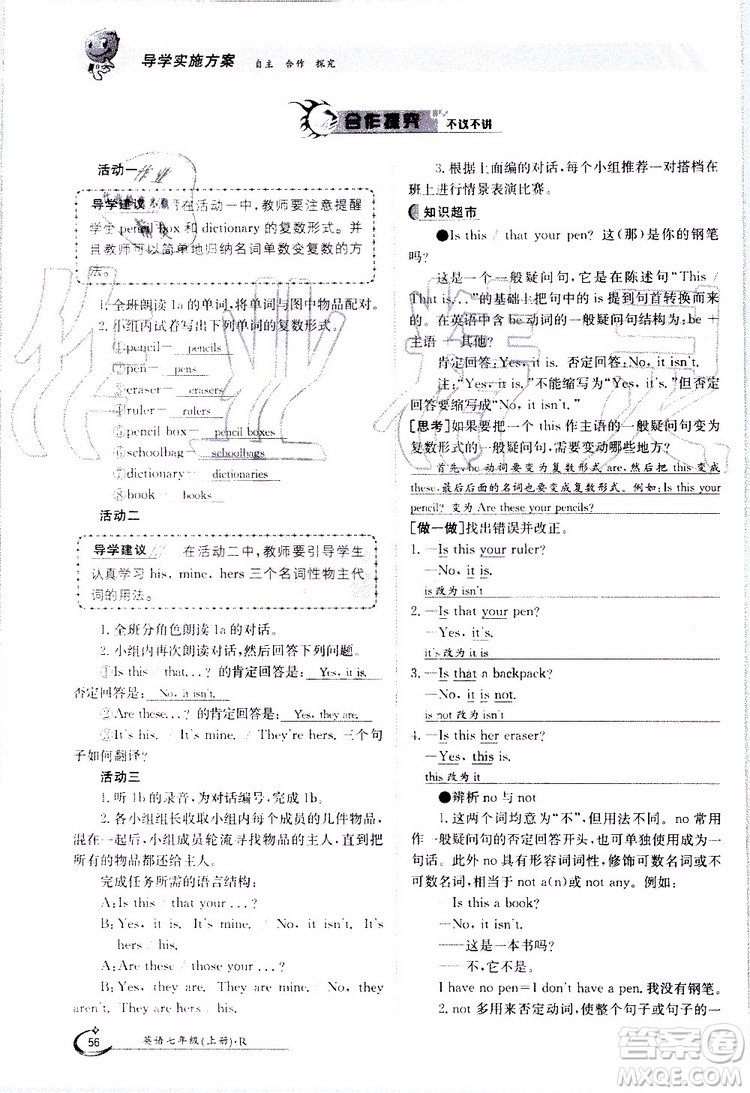 导学实施方案 自主 合作 探究
合作探究 不议不讲
活动一
导学建议 在活动一中,教师要注意提醒
学生 pencil box 和 dictionary 的复数形式。并
且教师可以简单地归纳名词单数变复数的方
法。
1. 全班朗读 1a 的单词，将单词与图中物品配对。
2. 小组内试着写出下列单词的复数形式。
①pencil — pencils
②pen — pens
③eraser — erasers
④ruler — rulers
⑤pencil box — pencil boxes
⑥schoolbag — schoolbags
⑦dictionary — dictionaries
⑧book — books
活动二
导学建议 在活动二中，教师要引导学生
认真学习 his, mine, hers 三个名词性物主代
词的用法。
1. 全班分角色朗读 1a 的对话。
2. 小组内再次朗读对话，然后回答下列问题。
①Is this / that...? 的肯定回答是: Yes, it is.
否定回答是: No, it isn't.
②Are these...? 的肯定回答是: Yes, they are.
③It's mine. / It's his. / They're hers. 三个句
子如何翻译?
活动三
1. 听 1b 的录音，为对话编号，完成 1b。
2. 各小组组长收取小组内每个成员的几件物品,
混在一起后,小组成员轮流寻找物品的主人,直到把
所有的物品都还给主人。
完成任务所需的语言结构:
A: Is this / that your...?
B: Yes, it is. It's mine. / No, it isn't. It's
hers / his.
A: Are these / those your...?
B: Yes, they are. They're mine. / No, they
aren't. They're hers / his.
56 英语七年级(上册)·R
3. 根据上面编的对话,每个小组推荐一对搭档在
班上进行情景表演比赛。
知识超市
●Is this / that your pen? 这（那）是你的钢笔
吗?
这是一个一般疑问句,它是在陈述句“This /
That is..."的基础上把句中的 is 提到句首转换而来
的。在英语中含 be 动词的一般疑问句结构为: be +
主语 + 其他?
肯定回答: Yes, it is. 否定回答: No, it isn't.
注:“Yes, it is.”不能缩写成“Yes, it's.”,但否定
回答要缩写成“No, it isn't.”
[思考]如果要把一个 this 作主语的一般疑问句变为
复数形式的一般疑问句,需要变动哪些地方?
首先, be 动词要变为复数形式 are, 然后把 this 变成
these, 最后后面的名词也要变成复数形式。例如: Is this your
pencil? 变为 Are these your pencils?
[做一做]找出错误并改正。
1. —Is this your ruler?
—No, it is.
is 改为 isn't
2. —Is that your pen?
—Yes, it's.
it's 改为 it is
3. —Is that a backpack?
—No, it is not.
is not 改为 isn't
4. —Is this her eraser?
—Yes, this is.
this 改为 it
●辨析 no 与 not
1. 这两个词均意为“不”,但用法不同。no 常用
作一般疑问句的否定回答开头,也可以单独成为一
句话。此外 no 具有形容词词性,修饰可数名词或不
可数名词,相当于 not a(n)或 not any。例如:
—Is this a book?
—No, it isn't.
——这是一本书吗?
——不,它不是。
I have no pen = I don't have a pen. 我没有钢笔。
2. not 多用来否定动词、整个句子或句子的一部